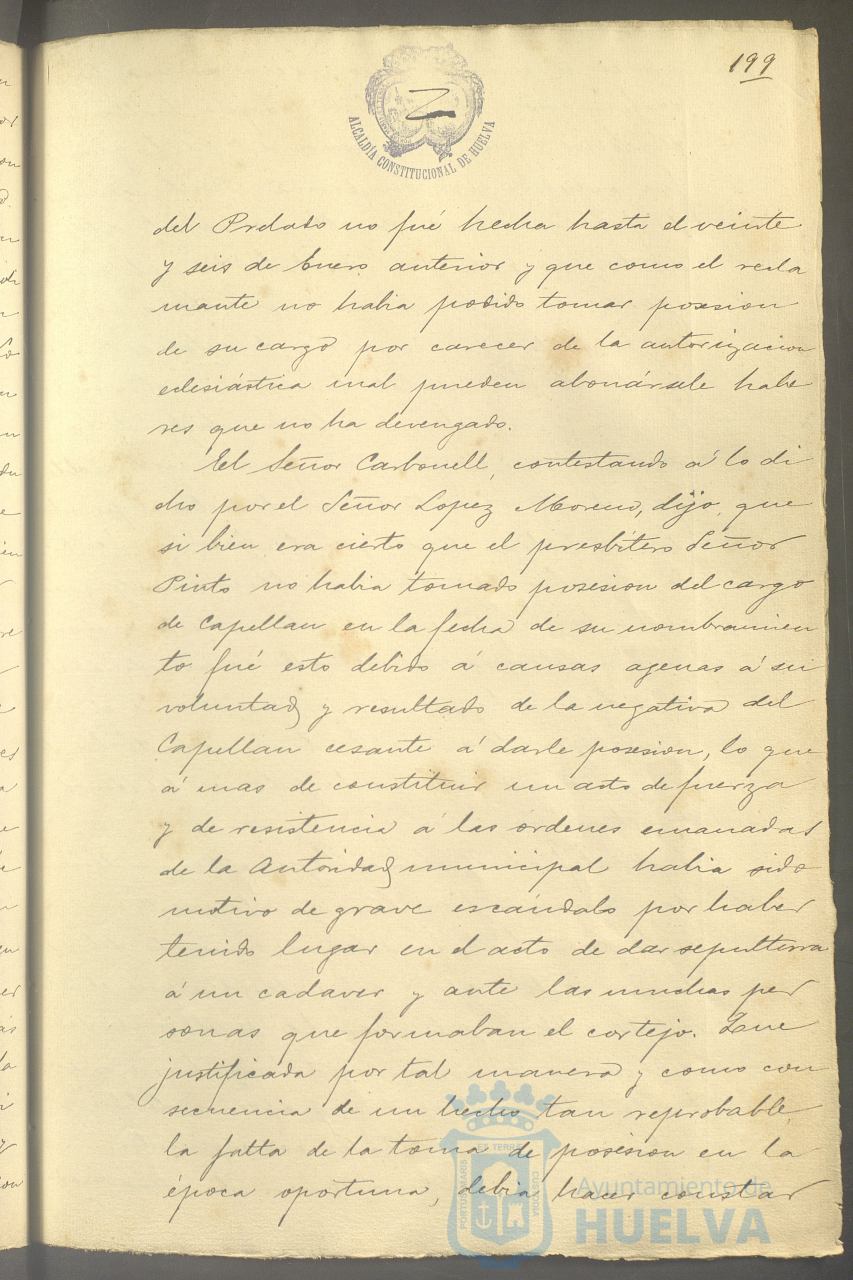 199
ALCALDÍA CONSTITUCIONAL DE HUELVA
del Prelado no fué hecha hasta el veinte
y seis de Enero anterior y que como el recla
mante no habia podido tomar posesion
de su cargo por carecer de la autorizacion
eclesiástica mal pueden abonársele habe
res que no ha devengado.
El Señor Carbonell, contestando á lo di
cho por el Señor Lopez Moreno, dijo, que
si bien era cierto que el presbitero Señor
Pinto no habia tomado posesion del cargo
de Capellan en la fecha de su nombramien
to fué esto debido á causas agenas á su
voluntad y resultado de la negativa del
Capellan cesante á darle posesion, lo que
á mas de constituir un acto de fuerza
y de resistencia á las órdenes emanadas
de la Autoridad municipal habia sido
motivo de grave escándalo por haber
tenido lugar en el acto de dar sepultura
á un cadaver y ante las muchas per
sonas que formaban el cortejo. Que
justificada por tal manera y como con
secuencia de un hecho tan reprobable
la falta de la toma de posesion en la
época oportuna, debia hacer constar
PORTUS MARIS ET TERRE CUSTODIA
Ayuntamiento de
HUELVA